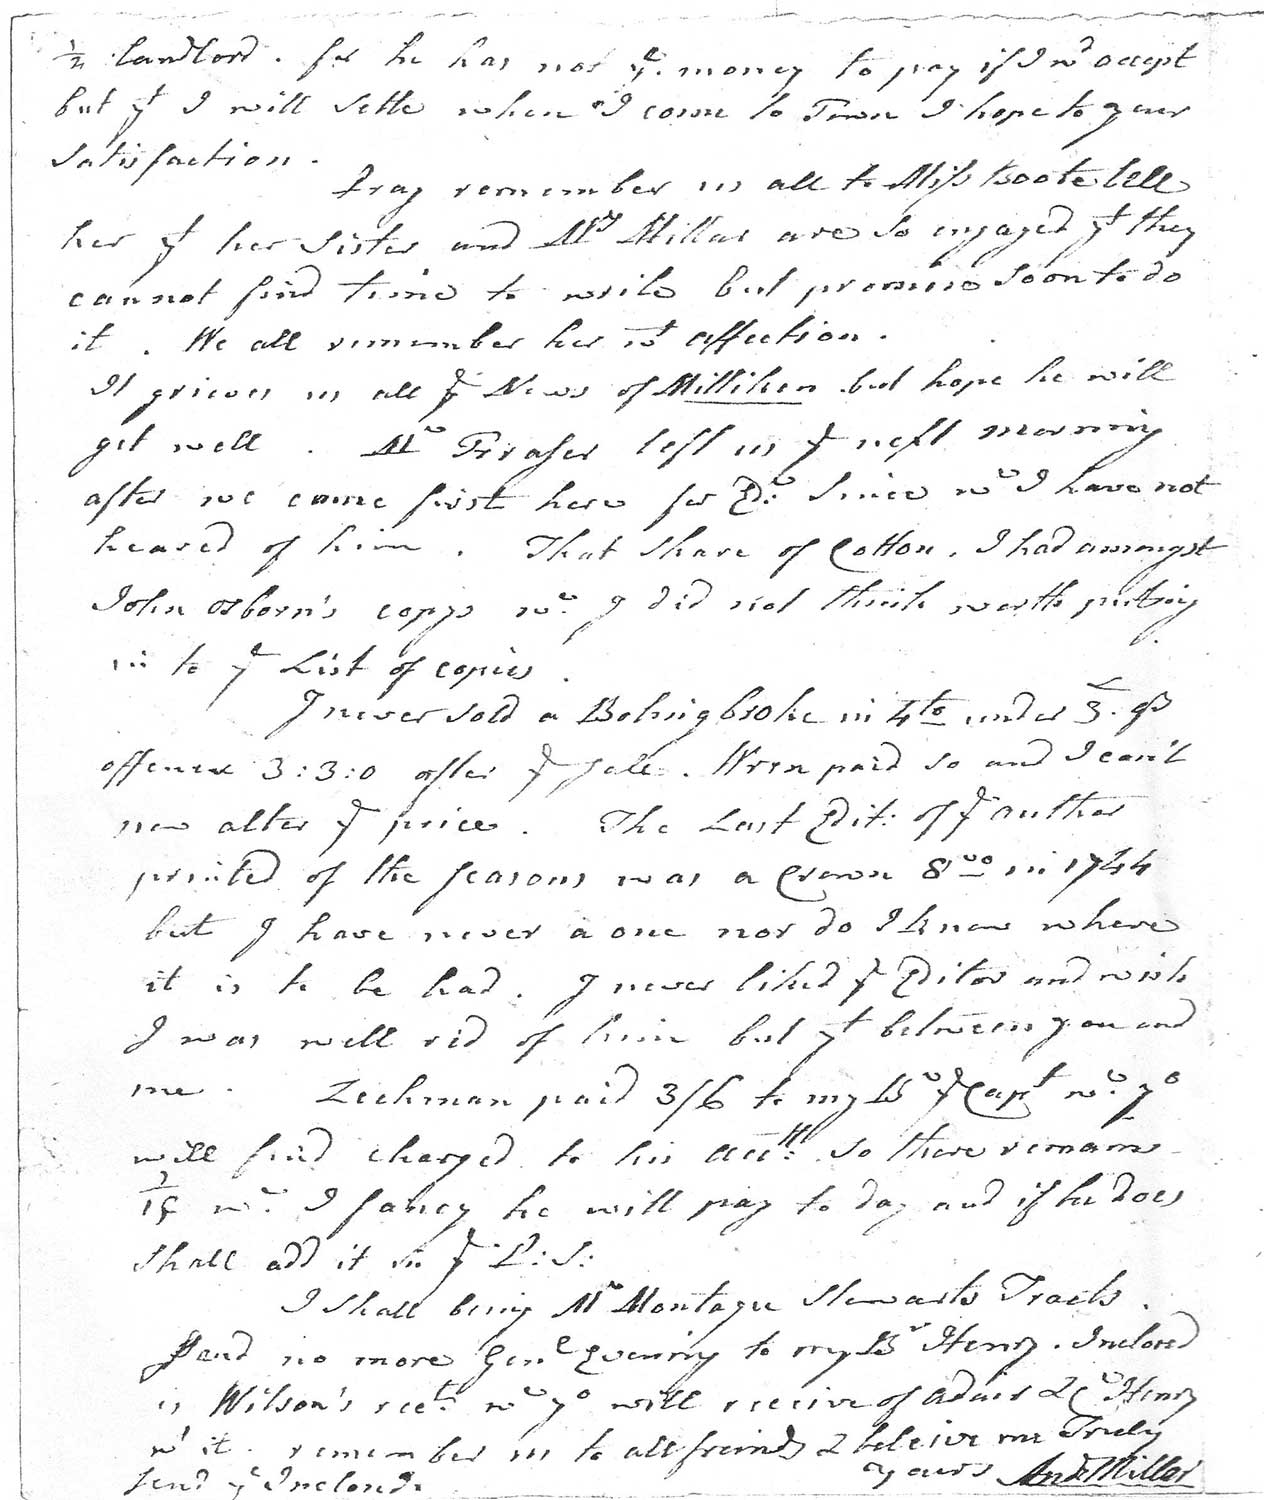 landlord. for he has not ye. money to pay if I wd accept
but yt I will settle when I come to Town I hope to your
Satisfaction.
Pray remember us all to Miss Boote tell
her yt her Sister and Mrs Millar are so engaged yt they
cannot find time to write but promise Soon to do
it. We all remember her wt affection.
It grieves us all ye News of Milliken but hope he will
get well. Mr Fraser left us ye next morning
after we came first here for Edr. Since wch I have not
heared of him. That Share of Cotton, I had amongst
John Osborn's copys wch. I did not think worth puting
in to ye List of copies.
I never sold a Bolingbroke in 4to under £3.
3:3:0 after ye Sale. Wren paid so and I can't
now alter ye price. The Last Edit: of ye author
printed of the Seasons was a Crown 8vo in 1744
but I have never a one nor do I know where
it is to be had. I never liked ye Editor and wish
I was well rid of him but yt between you and
me. Leckman paid 3/6 to my Br ye Capt wch. yo
will find charged to his acctt: so there remains
wch. I fancy he will pay to day and if he does
Shall add it in ye P:S:
I Shall bring Mr Montague Stewarts Tracts.
Send no more Genl Evening to my Br Henry. Inclosed
is Wilson's rect. wch yo will receive of Adair & Henry
wt it. remember us to all freinds & beleive me Truly
Send ye Inclosd. yours And Millar